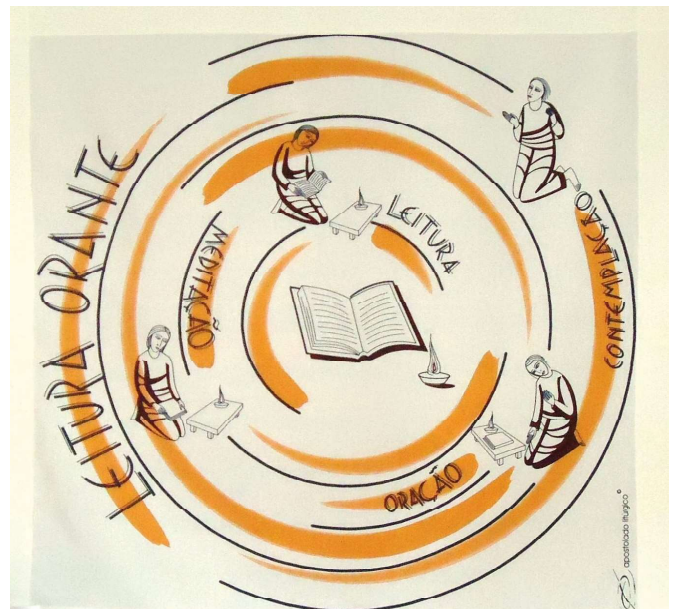 LEITURA ORANTE
LEITURA
MEDITAÇÃO
ORAÇÃO
CONTEMPLAÇÃO
apostolado litúrgico